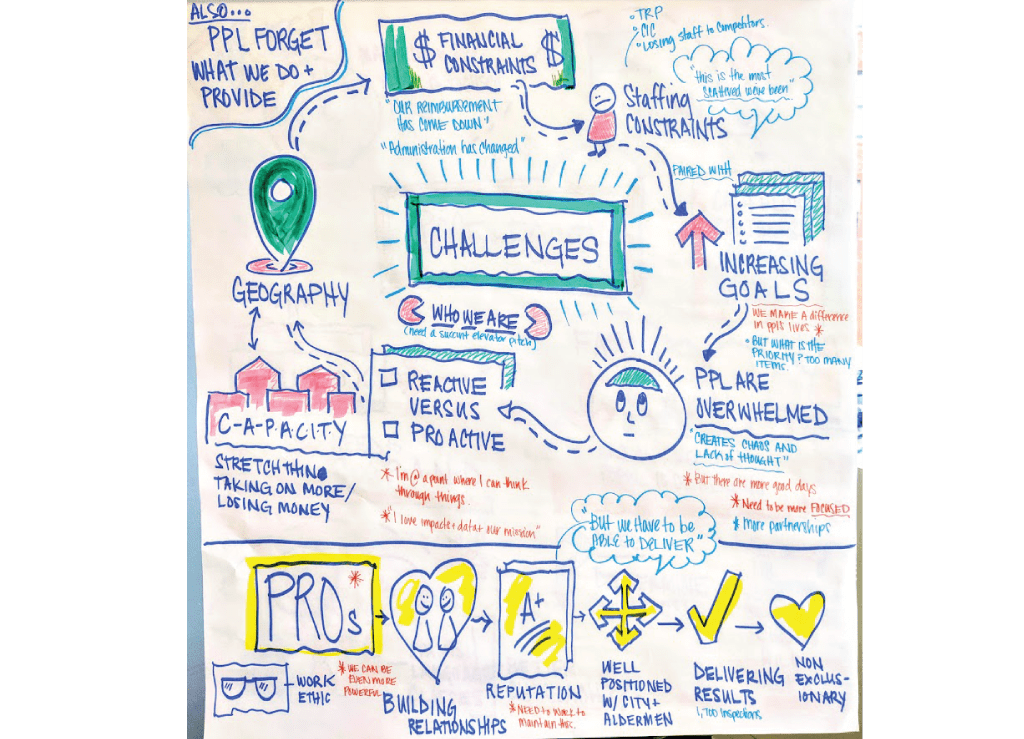 ALSO...
PPL FORGET
WHAT WE DO +
PROVIDE
$ FINANCIAL $
CONSTRAINTS
"OUR REIMBURSEMENT
HAS COME DOWN"
"Administration has changed"
• TRP
• CIC
• Losing staff to competitors.
"this is the most
scattered we've been"
Staffing
CONSTRAINTS
PAIRED WITH
INCREASING
GOALS
WE MAKE A difference
in ppls lives *
• BUT WHAT IS THE
PRIORITY? TOO MANY
ITEMS.
CHALLENGES
WHO WE ARE
(need a succint elevator pitch)
GEOGRAPHY
C-A-P-A-C-I-T-Y
STRETCH THIN
TAKING ON MORE/
LOSING MONEY
REACTIVE
VERSUS
PROACTIVE
* I'm @ a point where I can think
through things.
* "I love impact + data + our mission"
PPL ARE
OVERWHELMED
"CREATES CHAOS AND
LACK of thought"
* But there are more good days
* Need to be more FOCUSED
* More partnerships
"But we HAVE TO be
ABLE to DELIVER"
PROs *
* WE CAN BE
EVEN MORE
POWERFUL
WORK
ETHIC
BUILDING
RELATIONSHIPS
A+
REPUTATION
* NEED to work to
maintain this.
WELL
POSITIONED
W/ CITY +
ALDERMEN
DELIVERING
RESULTS
1,700 Inspections
NON
EXCLUS-
IONARY